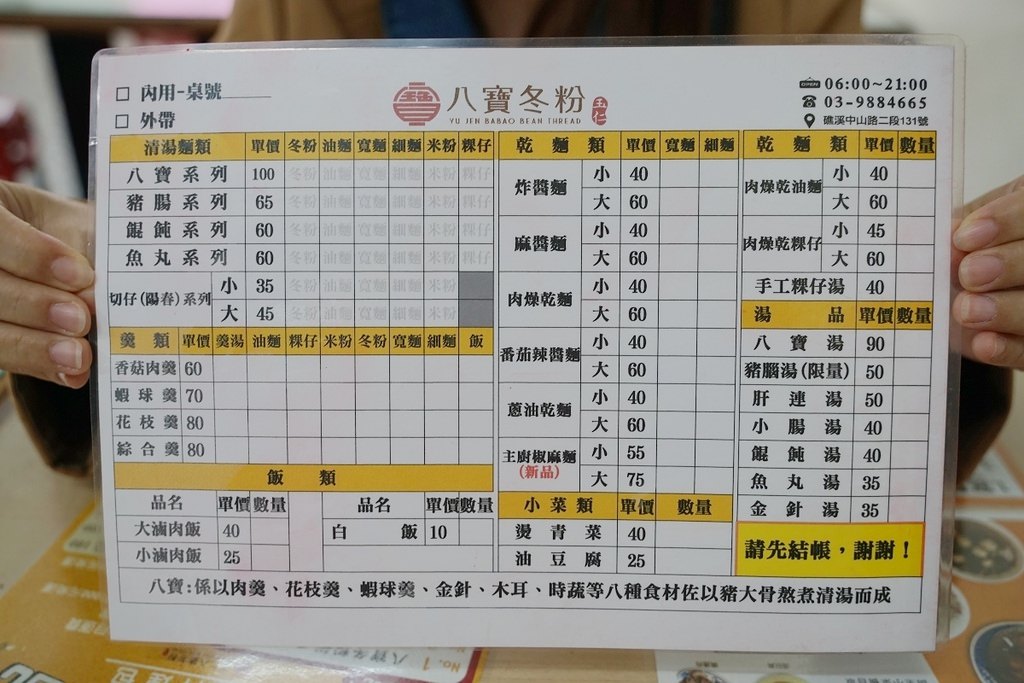 □ 內用-桌號______
□ 外帶
八寶冬粉 玉仁
YU JEN BABAO BEAN THREAD
OPEN 06:00~21:00
03-9884665
礁溪中山路二段131號
清湯麵類 單價 冬粉 油麵 寬麵 細麵 米粉 粿仔
八寶系列 100 冬粉 油麵 寬麵 細麵 米粉 粿仔
豬腸系列 65 冬粉 油麵 寬麵 細麵 米粉 粿仔
餛飩系列 60 冬粉 油麵 寬麵 細麵 米粉 粿仔
魚丸系列 60 冬粉 油麵 寬麵 細麵 米粉 粿仔
切仔(陽春)系列 小 35 冬粉 油麵 寬麵 細麵 米粉
大 45 冬粉 油麵 寬麵 細麵 米粉
羹類 單價 羹湯 油麵 粿仔 米粉 冬粉 寬麵 細麵 飯
香菇肉羹 60
蝦球羹 70
花枝羹 80
綜合羹 80
飯類
品名 單價 數量 品名 單價 數量
大滷肉飯 40 白飯 10
小滷肉飯 25
乾麵類 單價 寬麵 細麵
炸醬麵 小 40
大 60
麻醬麵 小 40
大 60
肉燥乾麵 小 40
大 60
番茄辣醬麵 小 40
大 60
蔥油乾麵 小 40
大 60
主廚椒麻麵 (新品) 小 55
大 75
小菜類 單價 數量
燙青菜 40
油豆腐 25
乾麵類 單價 數量
肉燥乾油麵 小 40
大 60
肉燥乾粿仔 小 45
大 60
手工粿仔湯 40
湯品 單價 數量
八寶湯 90
豬腦湯(限量) 50
肝連湯 50
小腸湯 40
餛飩湯 40
魚丸湯 35
金針湯 35
請先結帳，謝謝！
八寶:係以肉羹、花枝羹、蝦球羹、金針、木耳、時蔬等八種食材佐以豬大骨熬煮清湯而成
No. 1